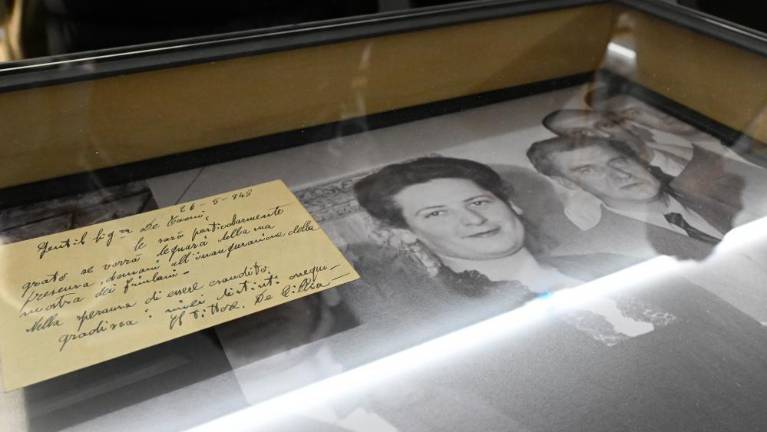 26-5-948
Gentil Sig.ra De
le sarò particolarmente
grato se vorrà degnare della sua
presenza, domani all'inaugurazione della
mostra dei friulani.
Nella speranza di essere esaudito,
gradisca i miei distinti ossequi